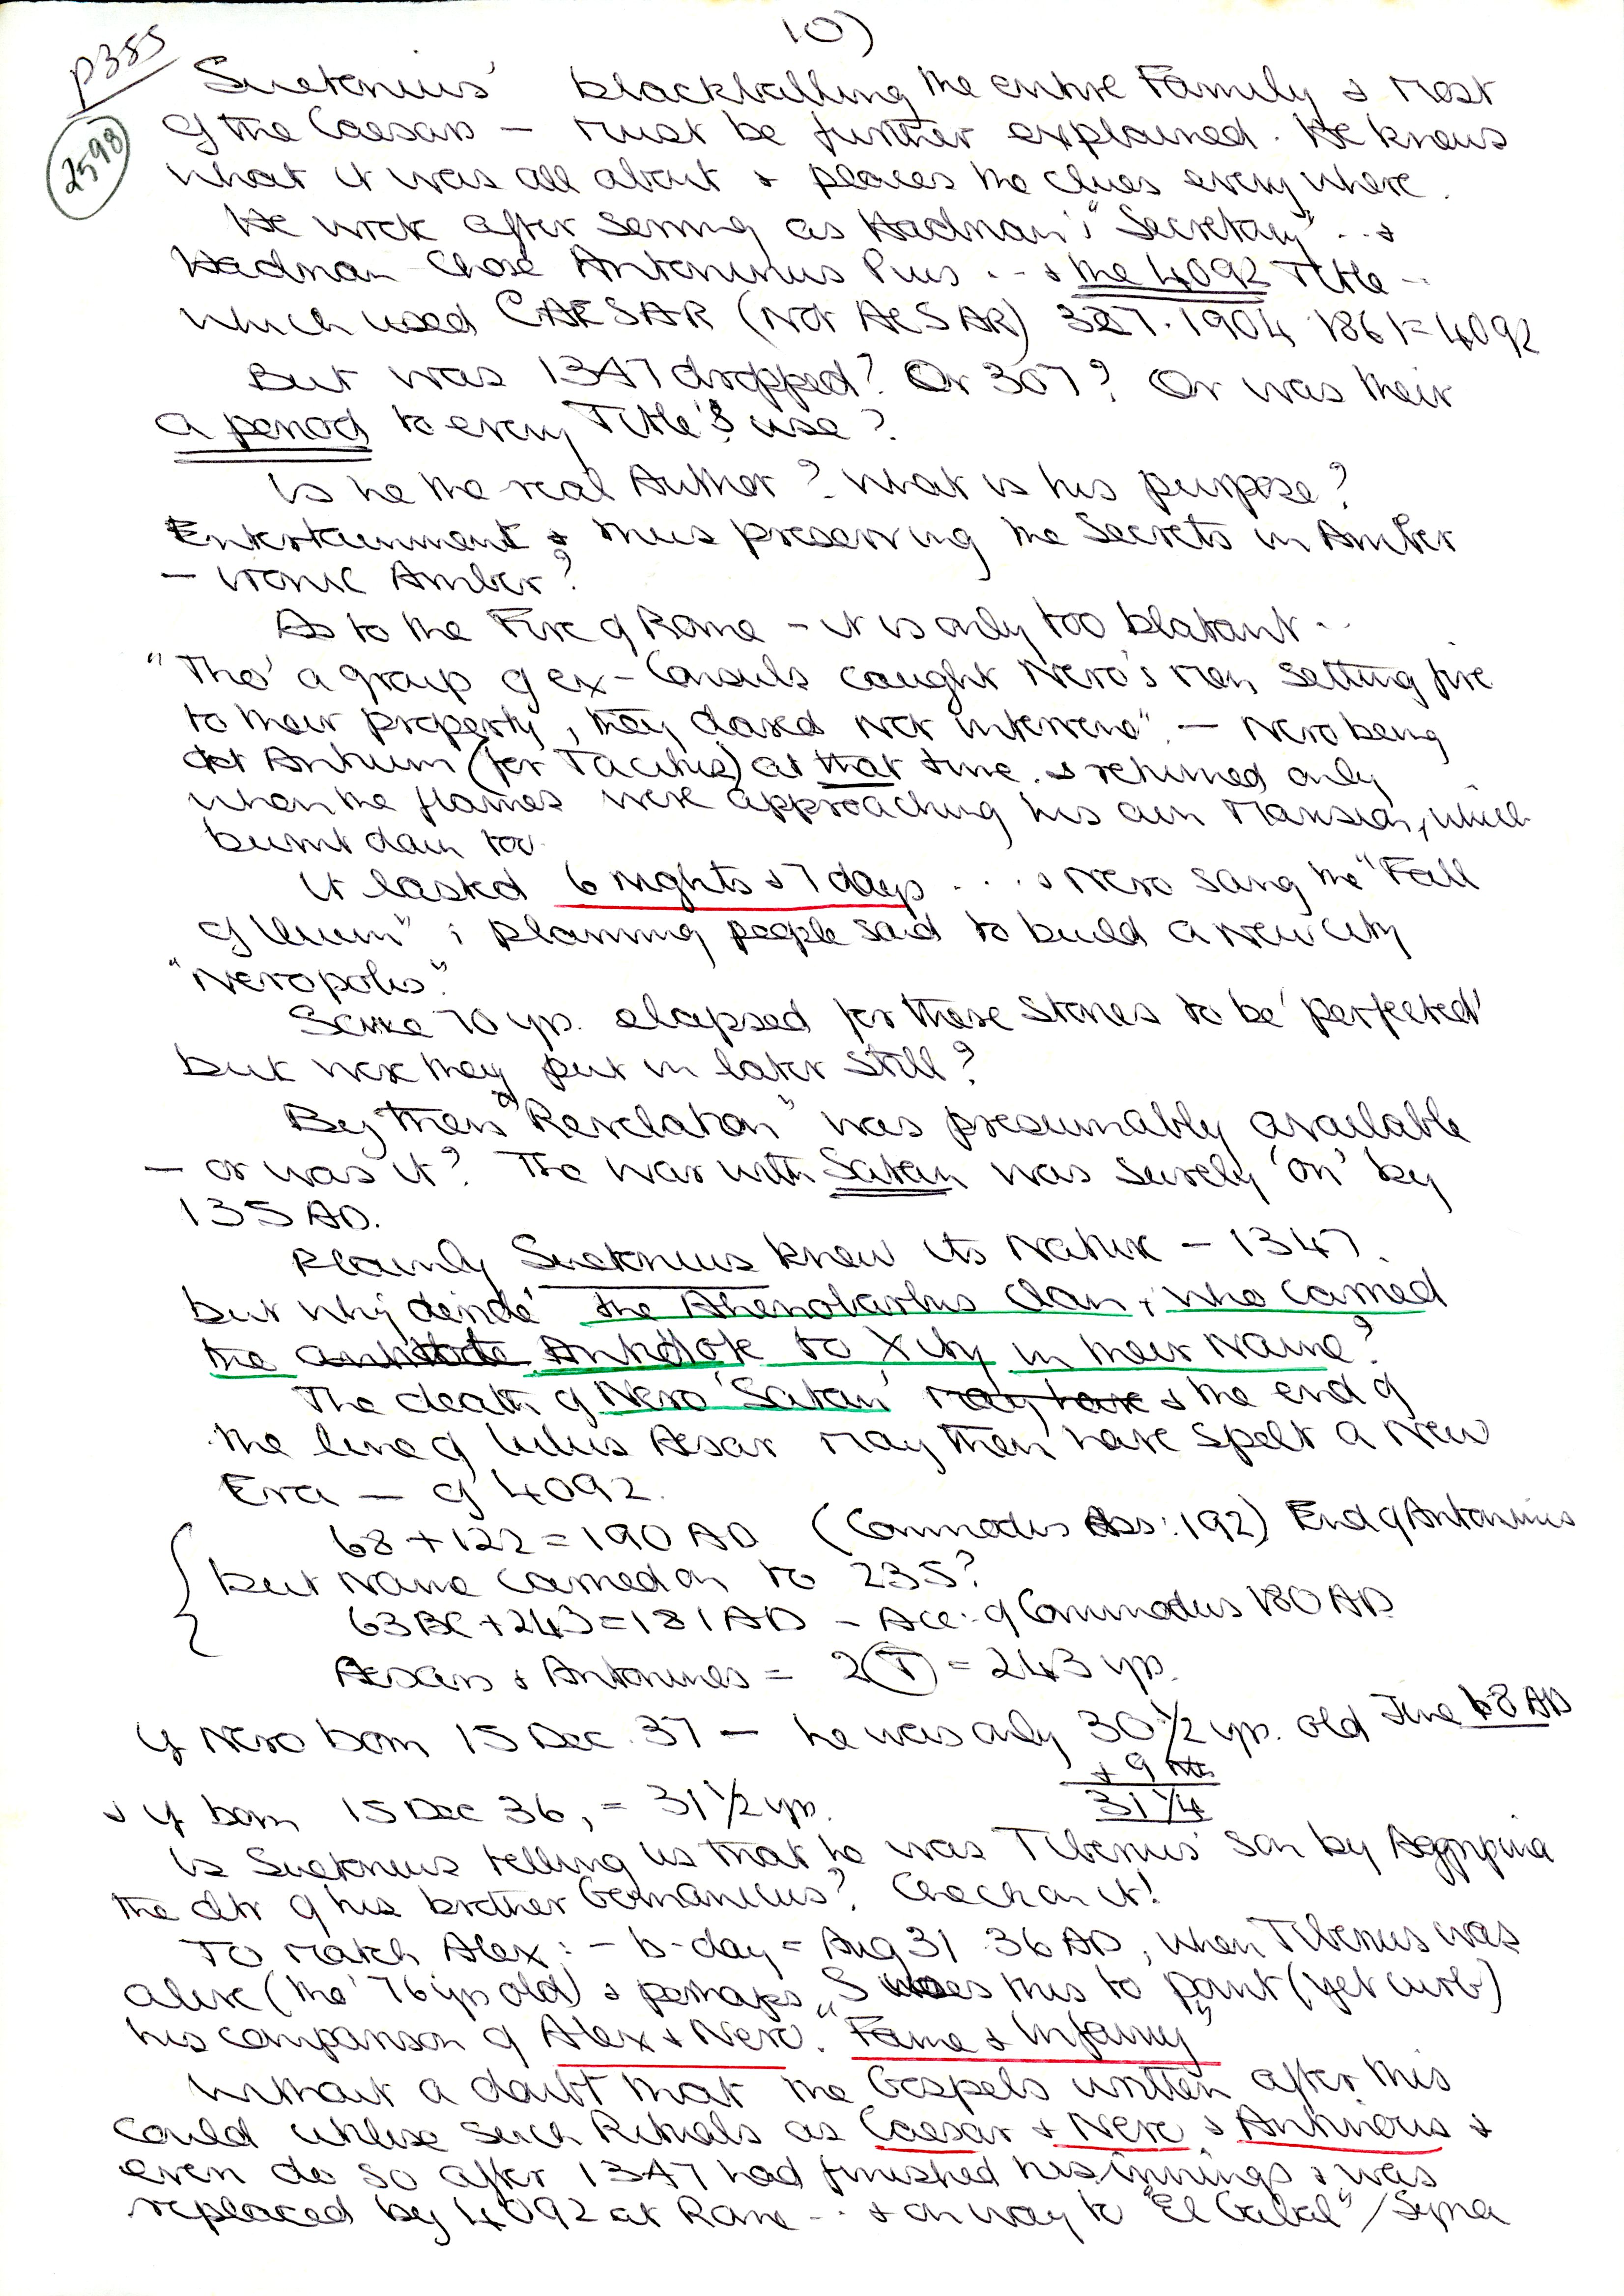 10)
p385
2598
Suetonius' blackballing the entire Family & most
of the Caesars – must be further explained. He knows
what it was all about & places the clues everywhere.
He wrote after serving as Hadrian's "Secretary" .. &
Hadrian chose Antoninus Pius .. & the 4092 Title ..
which used CAESAR (Not AESAR) 327. 1904 1861 = 4092
But was 1347 dropped? Or 307? Or was their
a period to every Title's use?
Is he the real Author? What is his purpose?
Entertainment & thus preserving the Secrets in Amber
– ironic Amber?
As to the Fire of Rome – it is only too blatant ..
"Tho' a group of ex-Consuls caught Nero's men setting fire
to their property, they dared not intervene". – Nero being
at Antium (per Tacitus) at that time. & returned only
when the flames were approaching his own Mansion, which
burnt down too.
It lasted 6 nights & 7 days .... & Nero sang the "Fall
of Ilium" ; planning people said to build a new City
"Neropolis".
Some 70 yrs. elapsed for these Stories to be 'perfected'
but were they put in later still?
By then "Revelation" was presumably available
– or was it? The War with Satan was surely 'on' by
135 AD.
Plainly Suetonius knew its Nature – 1347.
but why 'deride' the Ahenobarbus Clan, who carried
the Antidote to Xity in their Name?
The death of Nero 'Satan' may have & the end of
the line of Iulus Aesar may then have spelt a New
Era – of 4092.
68 + 122 = 190 AD (Commodus Ass: 192) End of Antonines
but Name carried on to 235?
63 BC + 243 = 181 AD – Acc: of Commodus 180 AD
Aesars & Antonines = 2(T) = 243 yrs.
If Nero born 15 Dec. 37 – he was only 30 1/2 yrs. old June 68 AD
+ 9 mths
31 1/4
& if born 15 Dec 36, = 31 1/2 yrs.
Is Suetonius telling us that he was Tiberius' son by Aggrippina
the dtr of his brother Germanicus? Check on it!
To match Alex: – b-day = Aug 31 36 AD, when Tiberius was
alive (tho' 76 yrs old) & perhaps S does this to point (yet curb)
his comparison of Alex & Nero. "Fame & Infamy"
Without a doubt that the Gospels written after this
could utilise such Rituals as Caesar & Nero & Antinous &
even do so after 1347 had finished his innings & was
replaced by 4092 at Rome .. & on way to "El Gabal" / Syria